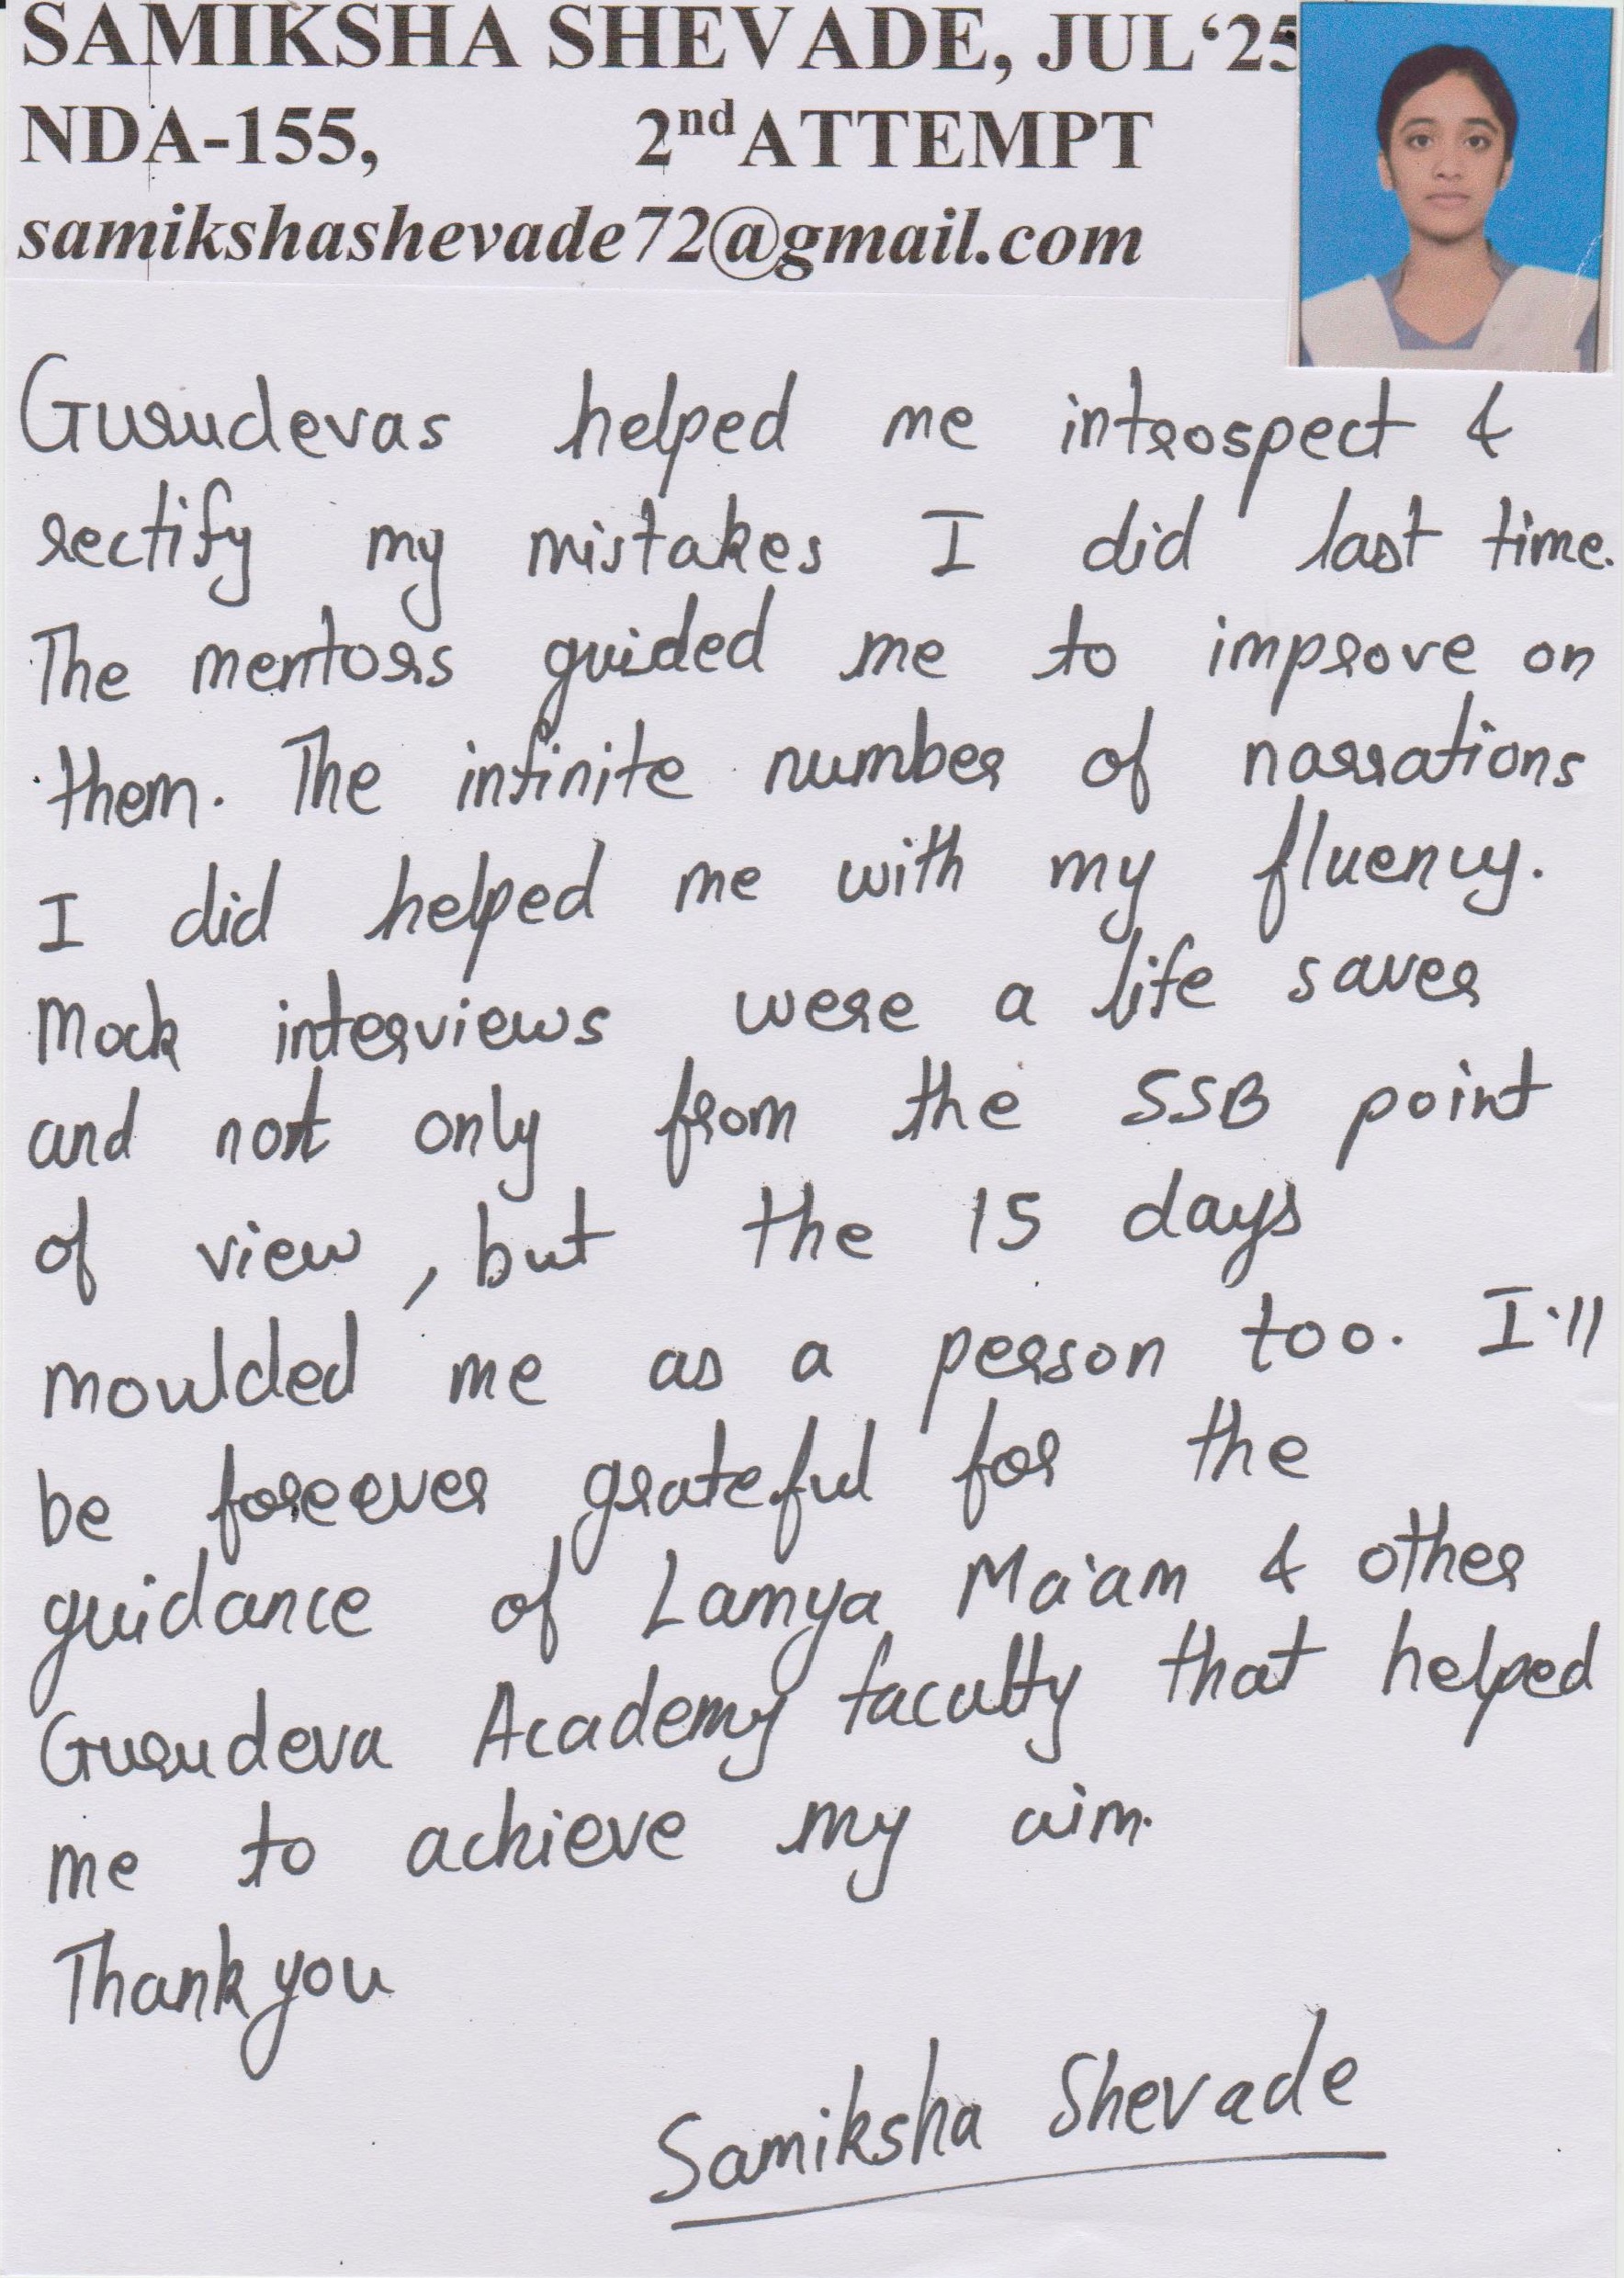 SAMIKSHA SHEVADE, JUL‘25
NDA-155, 2nd ATTEMPT
samikshashevade72@gmail.com
Gurudevas helped me introspect &
rectify my mistakes I did last time.
The mentors guided me to improve on
them. The infinite number of narrations
I did helped me with my fluency.
Mock interviews were a life saver
and not only from the SSB point
of view, but the 15 days
moulded me as a person too. I'll
be foreever grateful for the
guidance of Lamya Ma'am & other
Gurudeva Academy faculty that helped
me to achieve my aim.
Thank you
Samiksha Shevade